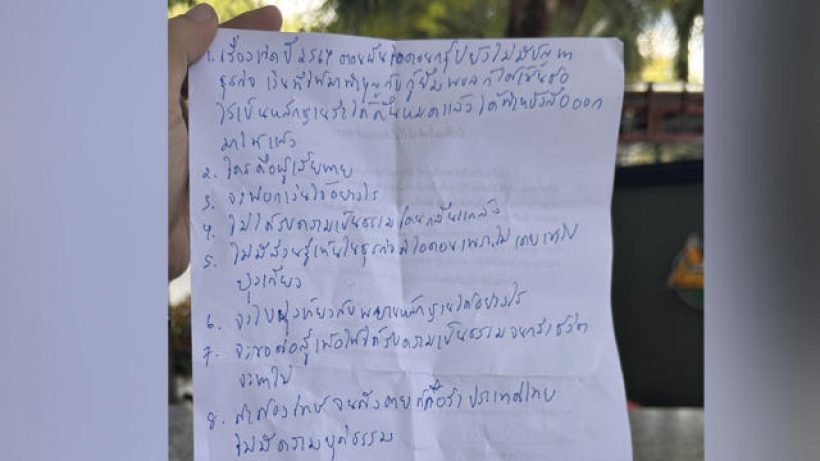 1. เรื่องเกิดปี 2567 ตอนนั้นไอคอนกรุ๊ปยังไม่มีปัญหา
ธุรกิจ เงินที่ให้มาทำบุญกับกู้ยืม พอล ก็ได้เซ็นต์
ไว้เป็นหลักฐาน ได้คืนหมดแล้ว ได้
มาให้แล้ว
2. ใครคือผู้เสียหาย
3. จะฟอกเงินได้อย่างไร
4. ไม่ได้รับความเป็นธรรม โดนกลั่นแกล้ง
5. ไม่มีส่วนรู้เห็นในธุรกิจดิไอคอน เพราะไม่เคยเข้าไป
ยุ่งเกี่ยว
6. จะไปยุ่งเหยิงกับพยานหลักฐานได้อย่างไร
7. จะขอต่อสู้เพื่อให้ได้รับความเป็นธรรม จนกว่าชีวิต
จะหาไม่
8. ถ้าต้องโทษ จนถึงตาย ก็ถือว่า ประเทศไทย
ไม่มีความยุติธรรม